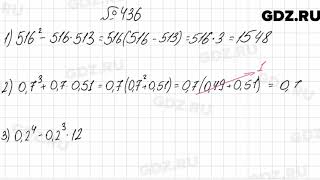 GDZ.RU
№ 436
1) 516² - 516·513 = 516(516 - 513) = 516·3 = 1548
2) 0,7³ + 0,7·0,51 = 0,7(0,7² + 0,51) = 0,7(0,49 + 0,51) = 0,7
1
3) 0,2⁴ - 0,2³·12
GDZ.RU